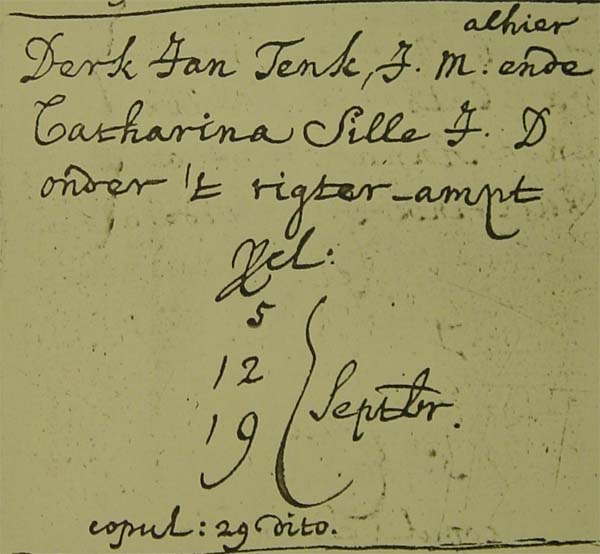 alhier
Derk Jan Tenk, J. M: ende
Catharina Sille J. D
onder 't rigter-ampt
Pcl:
5
12
19 Septbr.
copul: 29 dito.